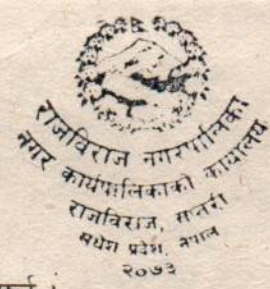 राजविराज नगरपालिका
नगर कार्यपालिकाको कार्यालय
राजविराज, सप्तरी
मधेश प्रदेश, नेपाल
२०७३